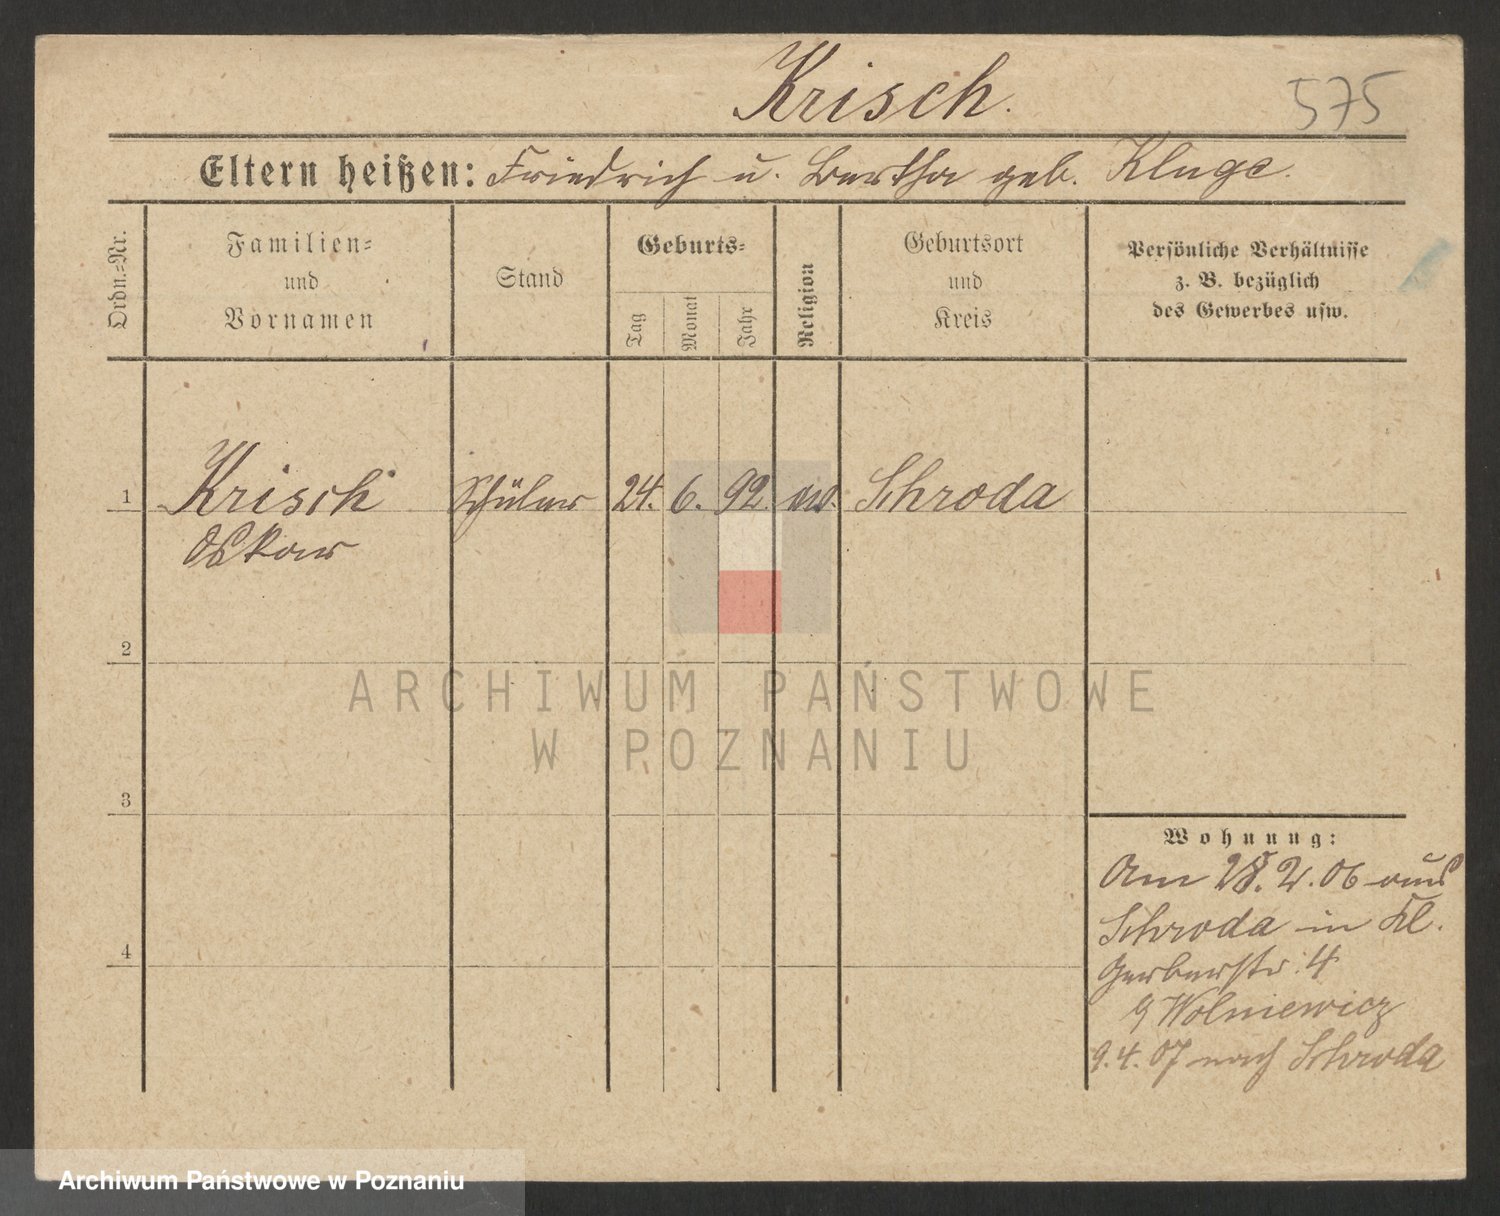 Krisch.
575
Eltern heißen: Friedrich u. Bertha geb. Kluge.
Ordn.-Nr.
Familien-
und
Vornamen
Stand
Geburts-
Tag
Monat
Jahr
Religion
Geburtsort
und
Kreis
Persönliche Verhältnisse
z. B. bezüglich
des Gewerbes usw.
1 Krisch Schüler 24. 6. 92. ev. Schroda
Oskar
2
ARCHIWUM PAŃSTWOWE
W POZNANIU
3
Wohnung:
Am 28. 2. 06 aus
Schroda in Kl.
Gerberstr. 4
Wolniewicz
9. 4. 07 nach Schroda
4
Archiwum Państwowe w Poznaniu